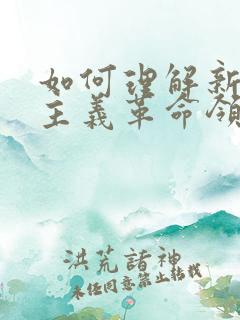 如何理解新
主义革命领
洪荒诸神
未经同意禁止转载